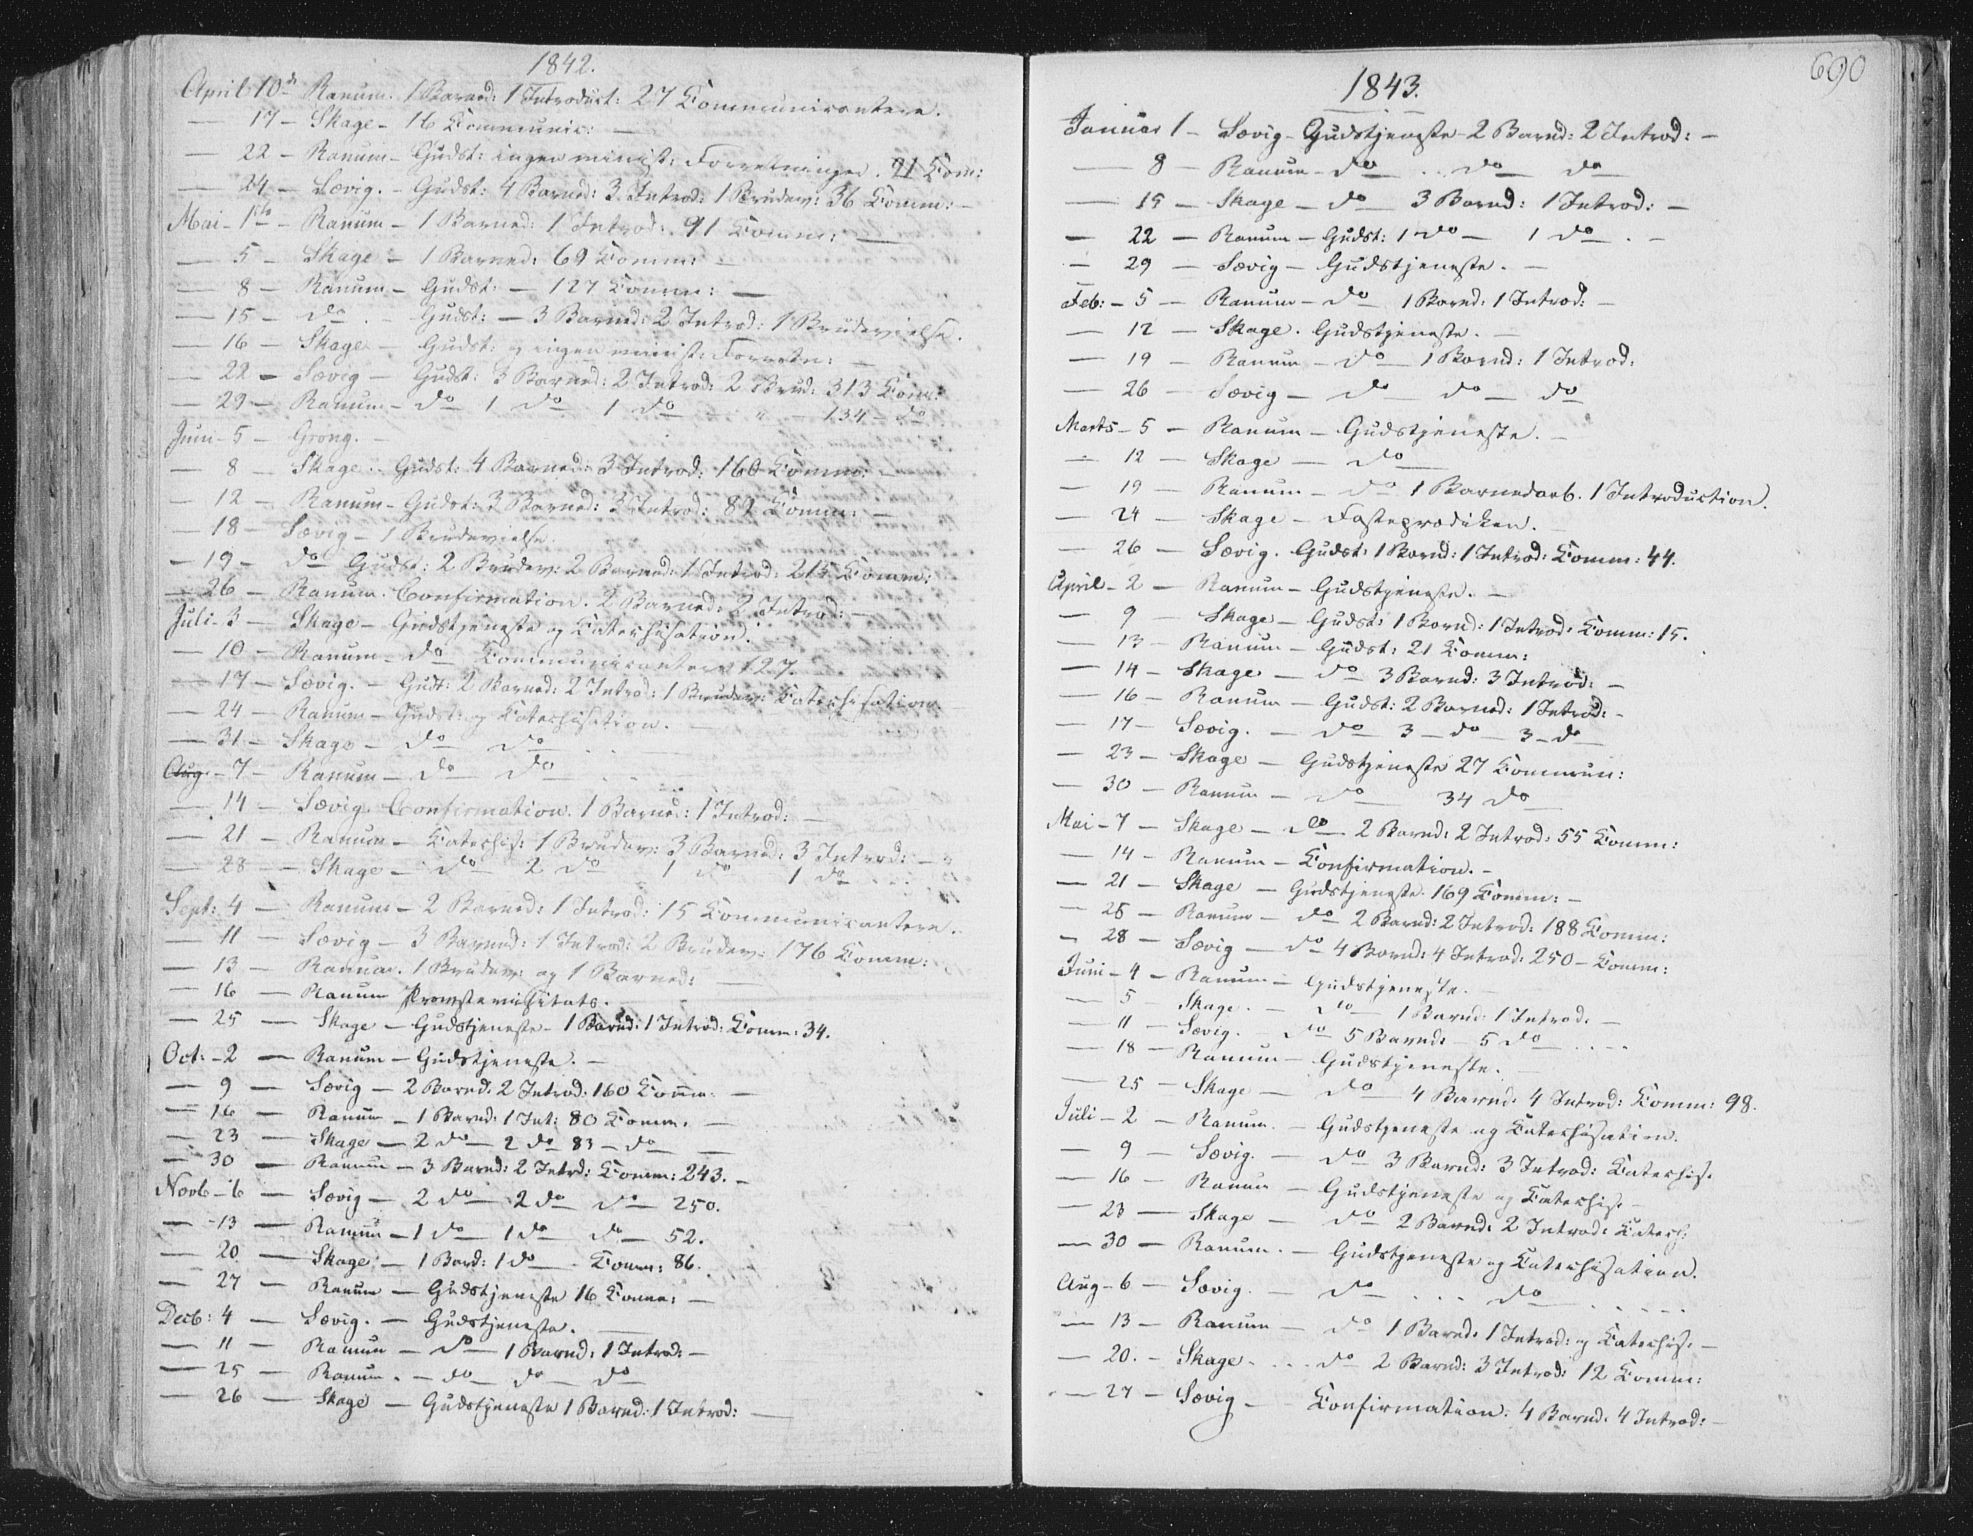 1842.
April 10de Ranum. 1 Barned: 1 Introduct: 27 Communicantere.
— 17 – Skage – 16 Communic: —
— 22 – Ranum – Gudst: ingen minist: Forretninger. 91 Com:
— 24 – Sævig. – Gudst: 4 Barned: 3 Introd: 1 Brudev: 36 Comm: –
Mai – 1ste – Ranum – 1 Barned: 1 Introd: 91 Comm: —
— 5 – Skage – 1 Barned: 69 Comm: —
— 8 – Ranum – Gudst: — 127 Comm: —
— 15 – do . Gudst: – 3 Barned: 2 Introd: 1 Brudevielse.
— 16 – Skage – Gudst: og ingen minist: Forretn: —
— 22 – Sævig – Gudst: 3 Barned: 2 Introd: 2 Brud: 313 Com:
— 29 – Ranum – do 1 do 1 do " — 134 – do
Juni – 5 – Grong. –
— 8 – Skage. Gudst: 4 Barned: 3 Introd: 160 Comm: –
— 12 – Ranum – Gudst: 3 Barned: 3 Introd: 82 Comm: –
— 18 – Sævig – 1 Brudevielse.
– 19 – do Gudst: 2 Brudev: 2 Barned: 1 Introd: 213 Comm:
– 26 – Ranum. Confirmation. 2 Barned: 2 Introd: —
Juli – 3 – Skage – Gudstjeneste og Catechisation.
— 10 – Ranum – do Communicantere 127.
— 17 – Sævig. – Gudt: 2 Barned: 2 Introd: 1 Brudev: Catechisation.
— 24 – Ranum – Gudst: og Catechisation.
— 31 – Skage – do do . .
Aug. – 7 – Ranum – do do . .
— 14 – Sævig. Confirmation. 1 Barned: 1 Introd: —
— 21 – Ranum – Catechis: 1 Brudev: 3 Barned: 3 Introd: –
— 28 – Skage – do 2 do 1 do 1 do . . .
Sept: 4 – Ranum – 2 Barned: 1 Introd: 15 Communicantere.
— 11 – Sævig – 3 Barned: 1 Introd: 2 Brudev: 176 Comm:
— 13 – Ranum. 1 Brudev: og 1 Barned: —
— 16 – Ranum Provstevisitats.
— 25 — Skage – Gudstjeneste – 1 Barnd: 1 Introd: Comm: 34.
Oct: – 2 — Ranum – Gudstjeneste. –
— 9 — Sævig – 2 Barnd: 2 Introd: 160 Comm: –
— 16 — Ranum – 1 Barnd: 1 Int: 80 Comm. —
— 23 — Skage – 2 do – 2 do 83 – do —
— 30 — Ranum – 3 Barnd: 2 Intrd: Comm: 243. –
Novb – 6 — Sævig – 2 do 2 do do – 250.
— 13 — Ranum – 1 do 1 do do – 52.
— 20 — Skage – 1 Bard: 1 do – Comm: 86.
— 27 — Ranum – Gudstjeneste 16 Comm: —
Decb: 4 — Sævig. – Gudstjeneste. —
— 11 — Ranum – do – 1 Barnd: 1 Introd: –
— 25 — Ranum. – do – do – do
— 26 — Skage – Gudstjeneste 1 Barnd: 1 Introd: —
690
1843.
Januar 1 – Sævig – Gudstjeneste – 2 Barnd: 2 Introd: –
— 8 – Ranum – do . . do do
— 15 – Skage – do 3 Barnd: 1 Introd: –
— 22 – Ranum – Gudst: 1 do – 1 do . –
— 29 – Sævig – Gudstjeneste. –
Feb: – 5 – Ranum – do 1 Barnd: 1 Introd: –
— 12 – Skage. Gudstjeneste. –
— 19 – Ranum – do 1 Barnd: 1 Introd:
— 26 – Sævig – do do – do
Marts – 5 – Ranum – Gudstjeneste. –
— 12 – Skage — do
— 19 – Ranum – do 1 Barnedaab. 1 Introduction.
— 24 – Skage – Fasteprædiken. –
— 26 – Sævig. Gudst: 1 Barnd: 1 Introd: Comm: 44.
April – 2 – Ranum – Gudstjeneste. –
— 9 – Skage – Gudst: 1 Barnd: 1 Introd: Comm: 15.
— 13 – Ranum – Gudst: 21 Comm:
— 14 – Skage – do 3 Barnd: 3 Introd: –
— 16 – Ranum – Gudst: 2 Barned: 1 Introd: –
— 17 – Sævig. – do 3 – do 3 – do
— 23 – Skage – Gudstjeneste 27 Commun:
— 30 – Ranum – do 34 do
Mai – 7 – Skage – do 2 Barnd: 2 Introd: 55 Comm:
— 14 – Ranum – Confirmation. –
— 21 – Skage – Gudstjeneste. 169 Comm: –
— 25 – Ranum – do 2 Barnd: 2 Introd: 188 Comm:
— 28 – Sævig – do 4 Barnd: 4 Introd: 250 – Comm:
Juni – 4 – Ranum – Gudstjeneste. –
— 5 Skage. – do 1 Barnd: 1 Introd. –
— 11 – Sævig. – do 5 Barnd: – 5 do . . . .
— 18 – Ranum – Gudstjeneste. –
— 25 – Skage – do 4 Barnd: 4 Introd: Comm: 98.
Juli – 2 – Ranum. – Gudstjeneste og Catechisation.
— 9 – Sævig. – do 3 Barnd: 3 Introd: Catechis.
— 16 – Ranum – Gudstjeneste og Catechis. –
— 23 – Skage – do 2 Barnd: 2 Introd: Catech:
— 30 – Ranum. – Gudstjeneste og Catechisation.
Aug – 6 – Sævig. – do . . . do . . . . .
— 13 – Ranum – do 1 Barnd: 1 Introd: og Catechis. –
— 20. – Skage – . . . do 2 Barnd: 3 Introd: 12 Comm:
— 27 – Sævig – Confirmation: 4 Barnd. 4 Introd: –